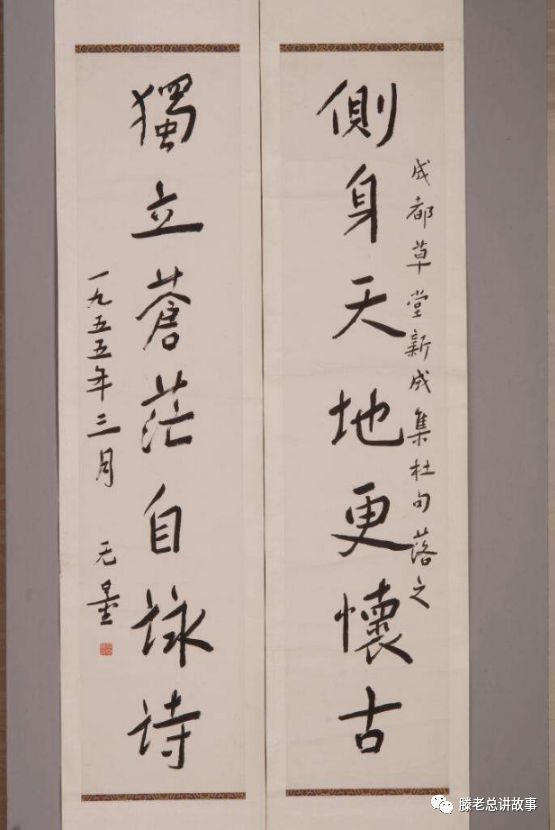 成都草堂新成集杜句落之
側身天地更懷古
獨立蒼茫自詠詩
一九五五年三月 无量
滕老总讲故事